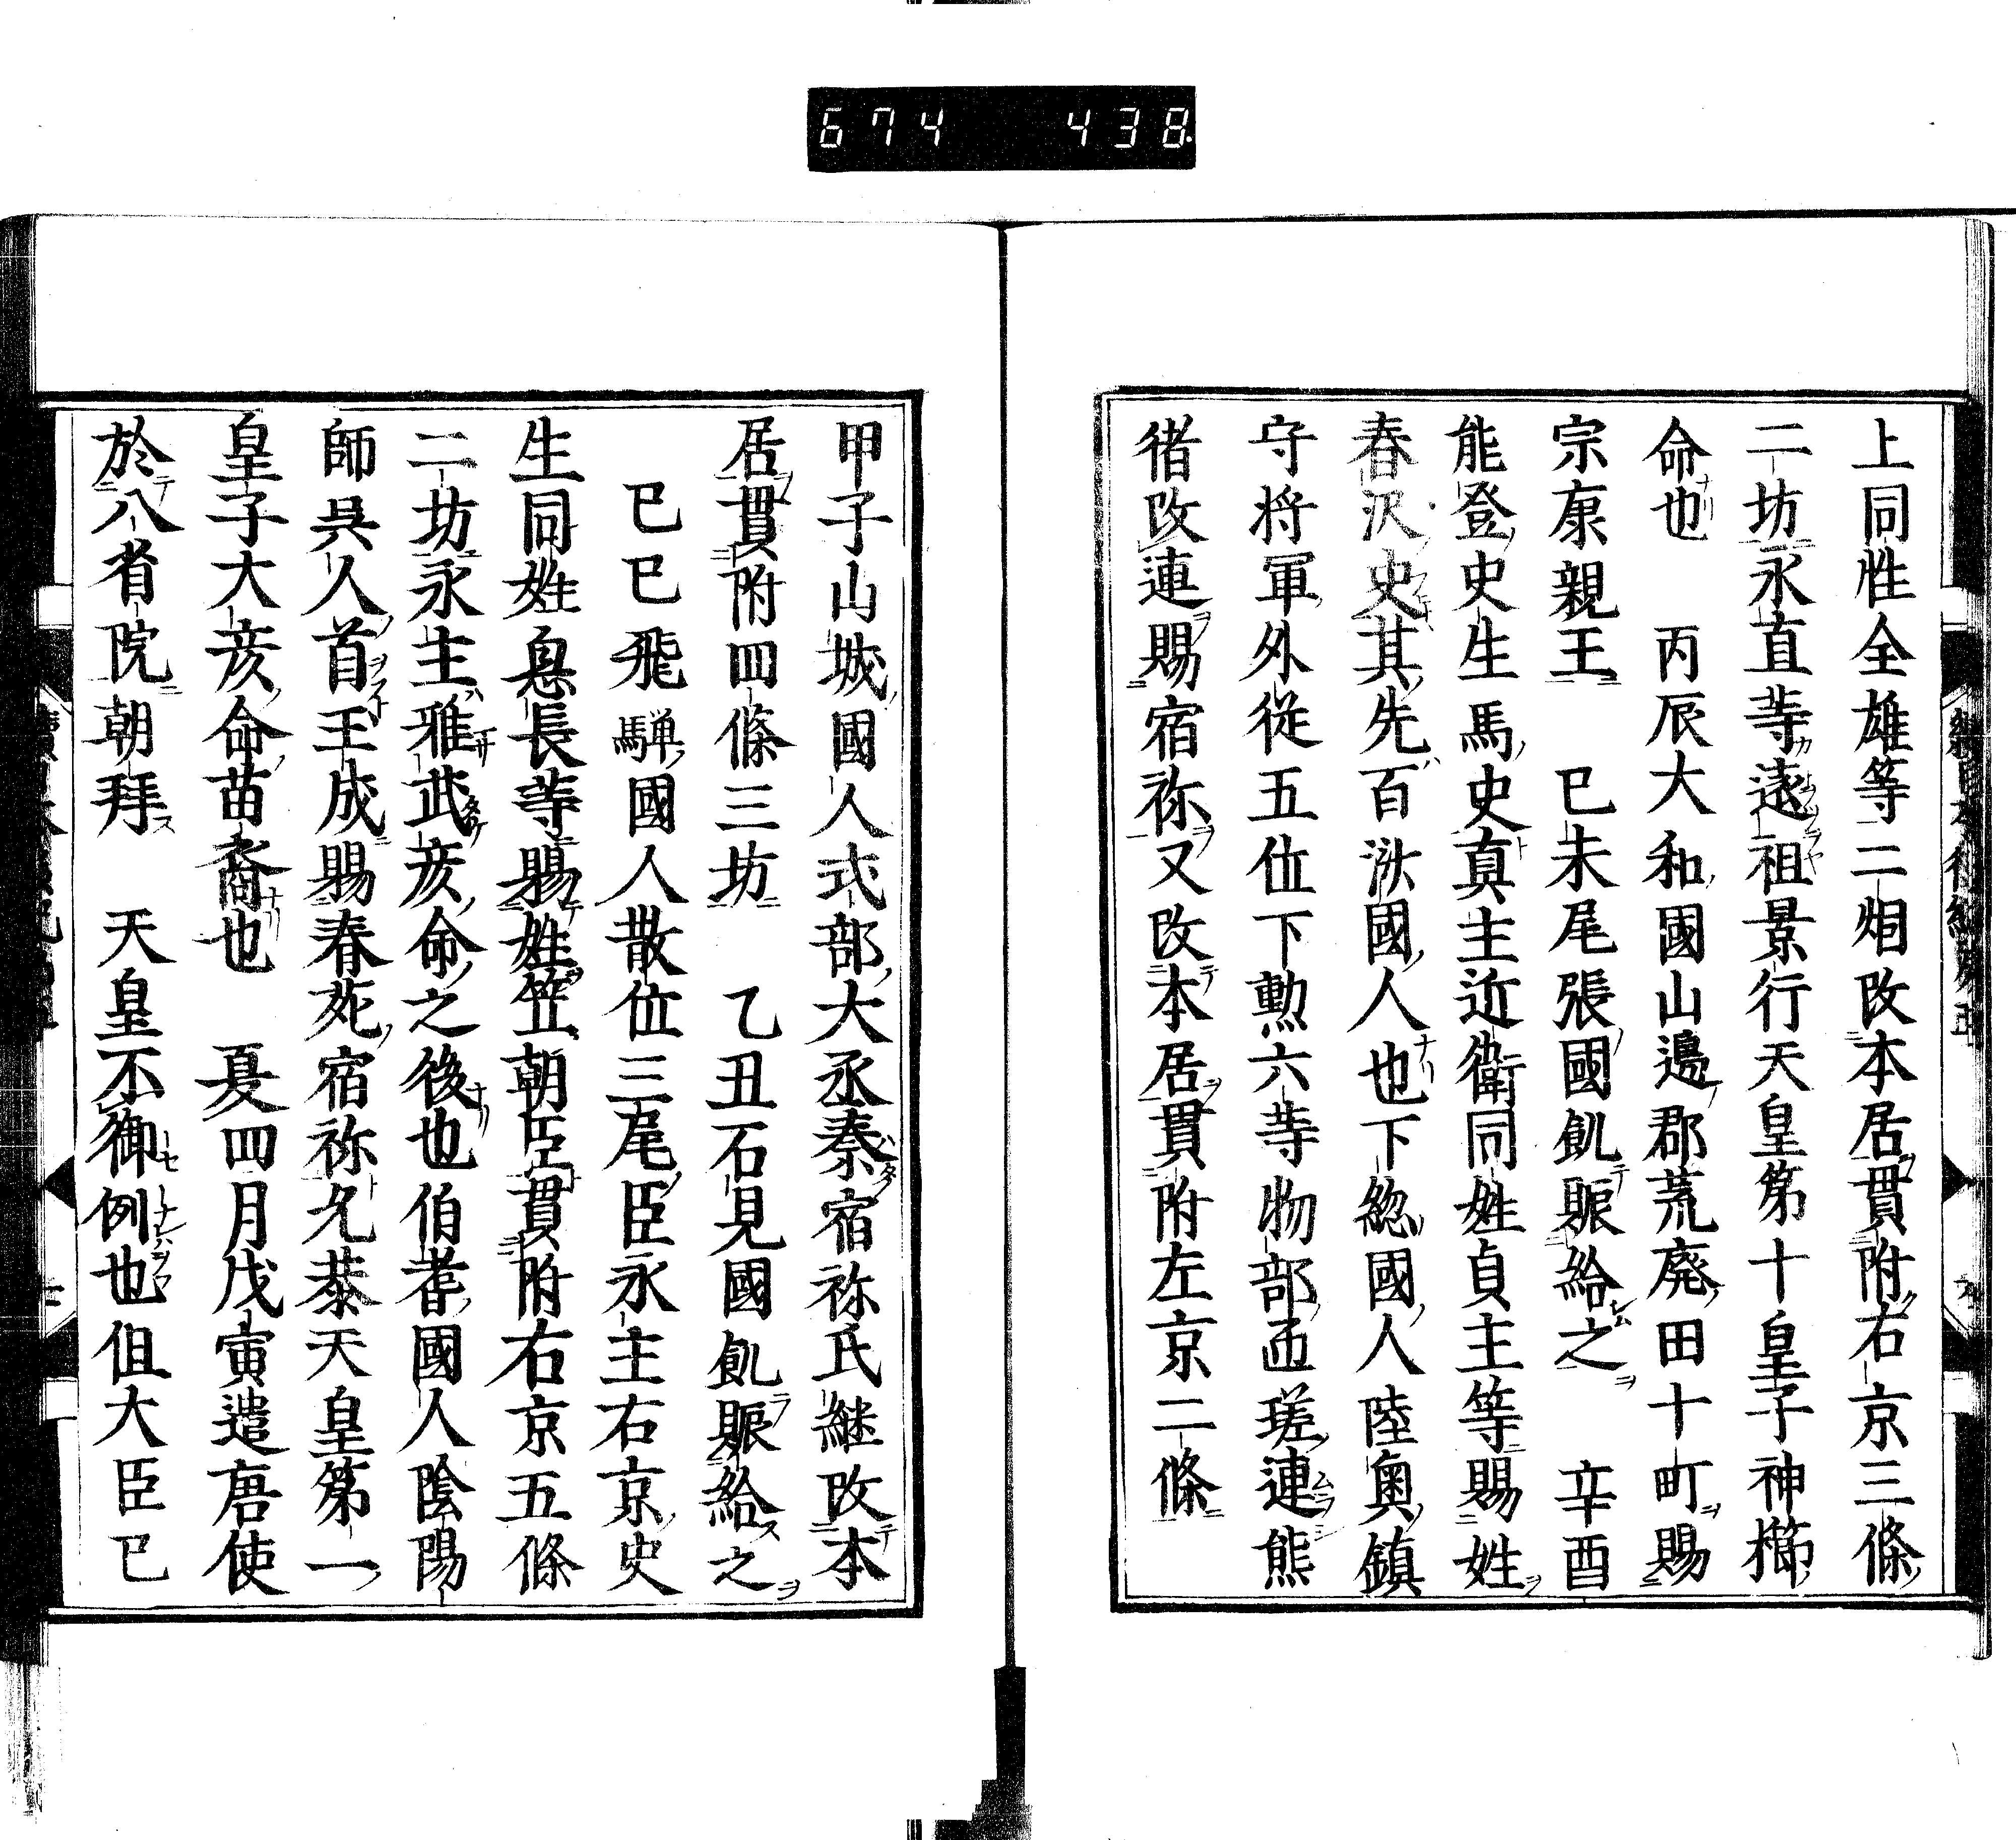 674 438
上同姓全雄等二烟改本居貫附右京三條
二坊永直等遠祖景行天皇第十皇子神櫛
命也　丙辰大和國山邊郡荒廃田十町賜
宗康親王　已未尾張國飢賑給之　辛酉
能登史生馬史真主近衛同姓貞主等賜姓
春沢史其先百済國人也下総國人陸奥鎮
守将軍外従五位下勲六等物部匝瑳連熊
猪改連賜宿祢又改本居貫附左京二條
甲子山城國人式部大丞秦宿祢氏継改本
居貫附四條三坊　乙丑石見國飢賑給之
已巳飛騨國人散位三尾臣永主右京史
生同姓息長等賜姓笠朝臣貫附右京五條
二坊永主雅武彦命之後也伯耆國人陰陽
師呉人首王成賜春苑宿祢允恭天皇第一
皇子大彦命苗裔也　夏四月戊寅遣唐使
於八省院朝拜　天皇不御例也但大臣已